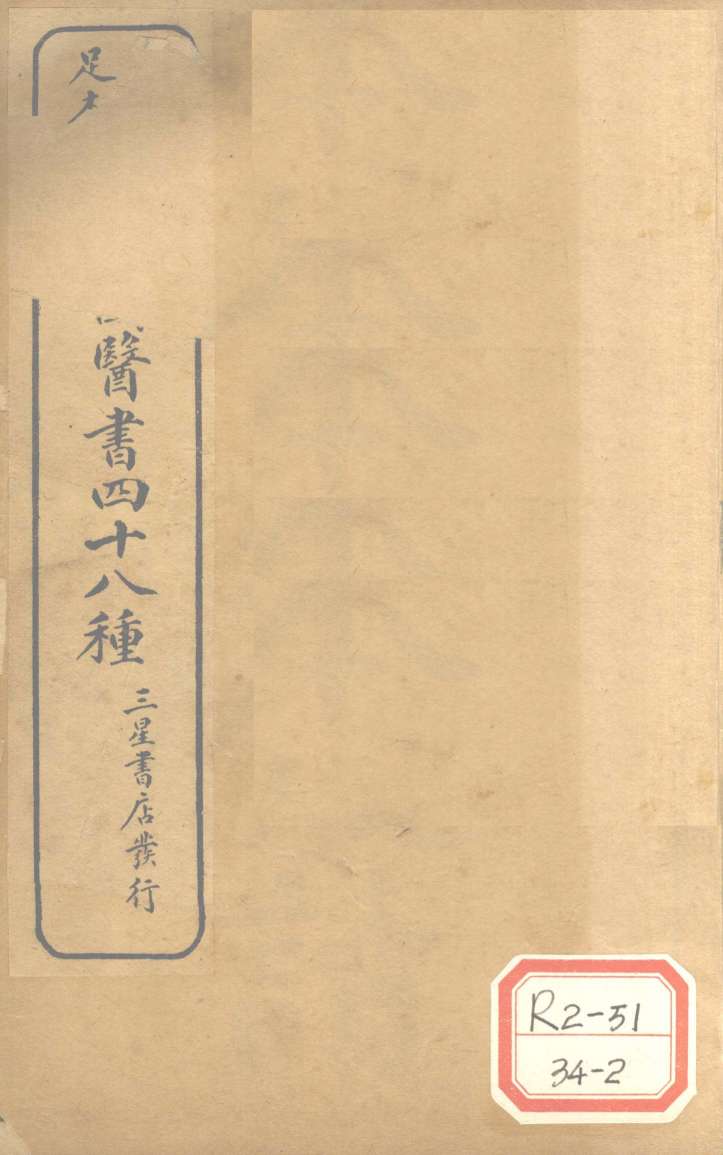 足本
醫書四十八種
三星書店發行
R2-51
34-2